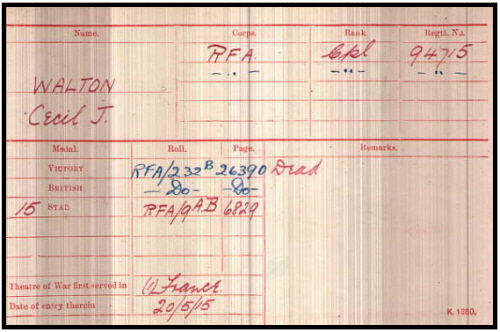 Name. Corps. Rank. Regtl. No.
RFA. Cpl 94715
- " - - " - - " -
WALTON
Cecil J.
Medal. Roll. Page. Remarks.
VICTORY RFA/232B 26390 Dead
BRITISH - Do - - Do -
15 STAR RFA/9A.B 6829
Theatre of War first served in (1) France.
Date of entry therein 20/5/15
K. 1380.